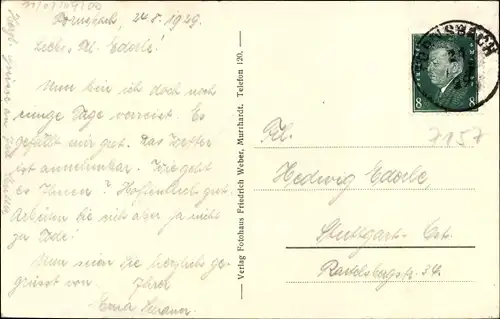 24.8.1929
Liebes Frl. Ederle!
Nun bin ich doch noch
einige Tage verreist. Es
gefällt mir gut. Das Wetter
ist annehmbar. Wie geht
es Ihnen? Hoffentlich gut.
Arbeiten Sie sich aber ja nicht
zu Tode!
Nun seien Sie herzlich ge-
grüsst von
Erna
Verlag Fotohaus Friedrich Weber, Murrhardt. Telefon 120.
DEUTSCHES REICH
8 8
7157
Frl.
Hedwig Ederle,
Stuttgart-Ost.
34.